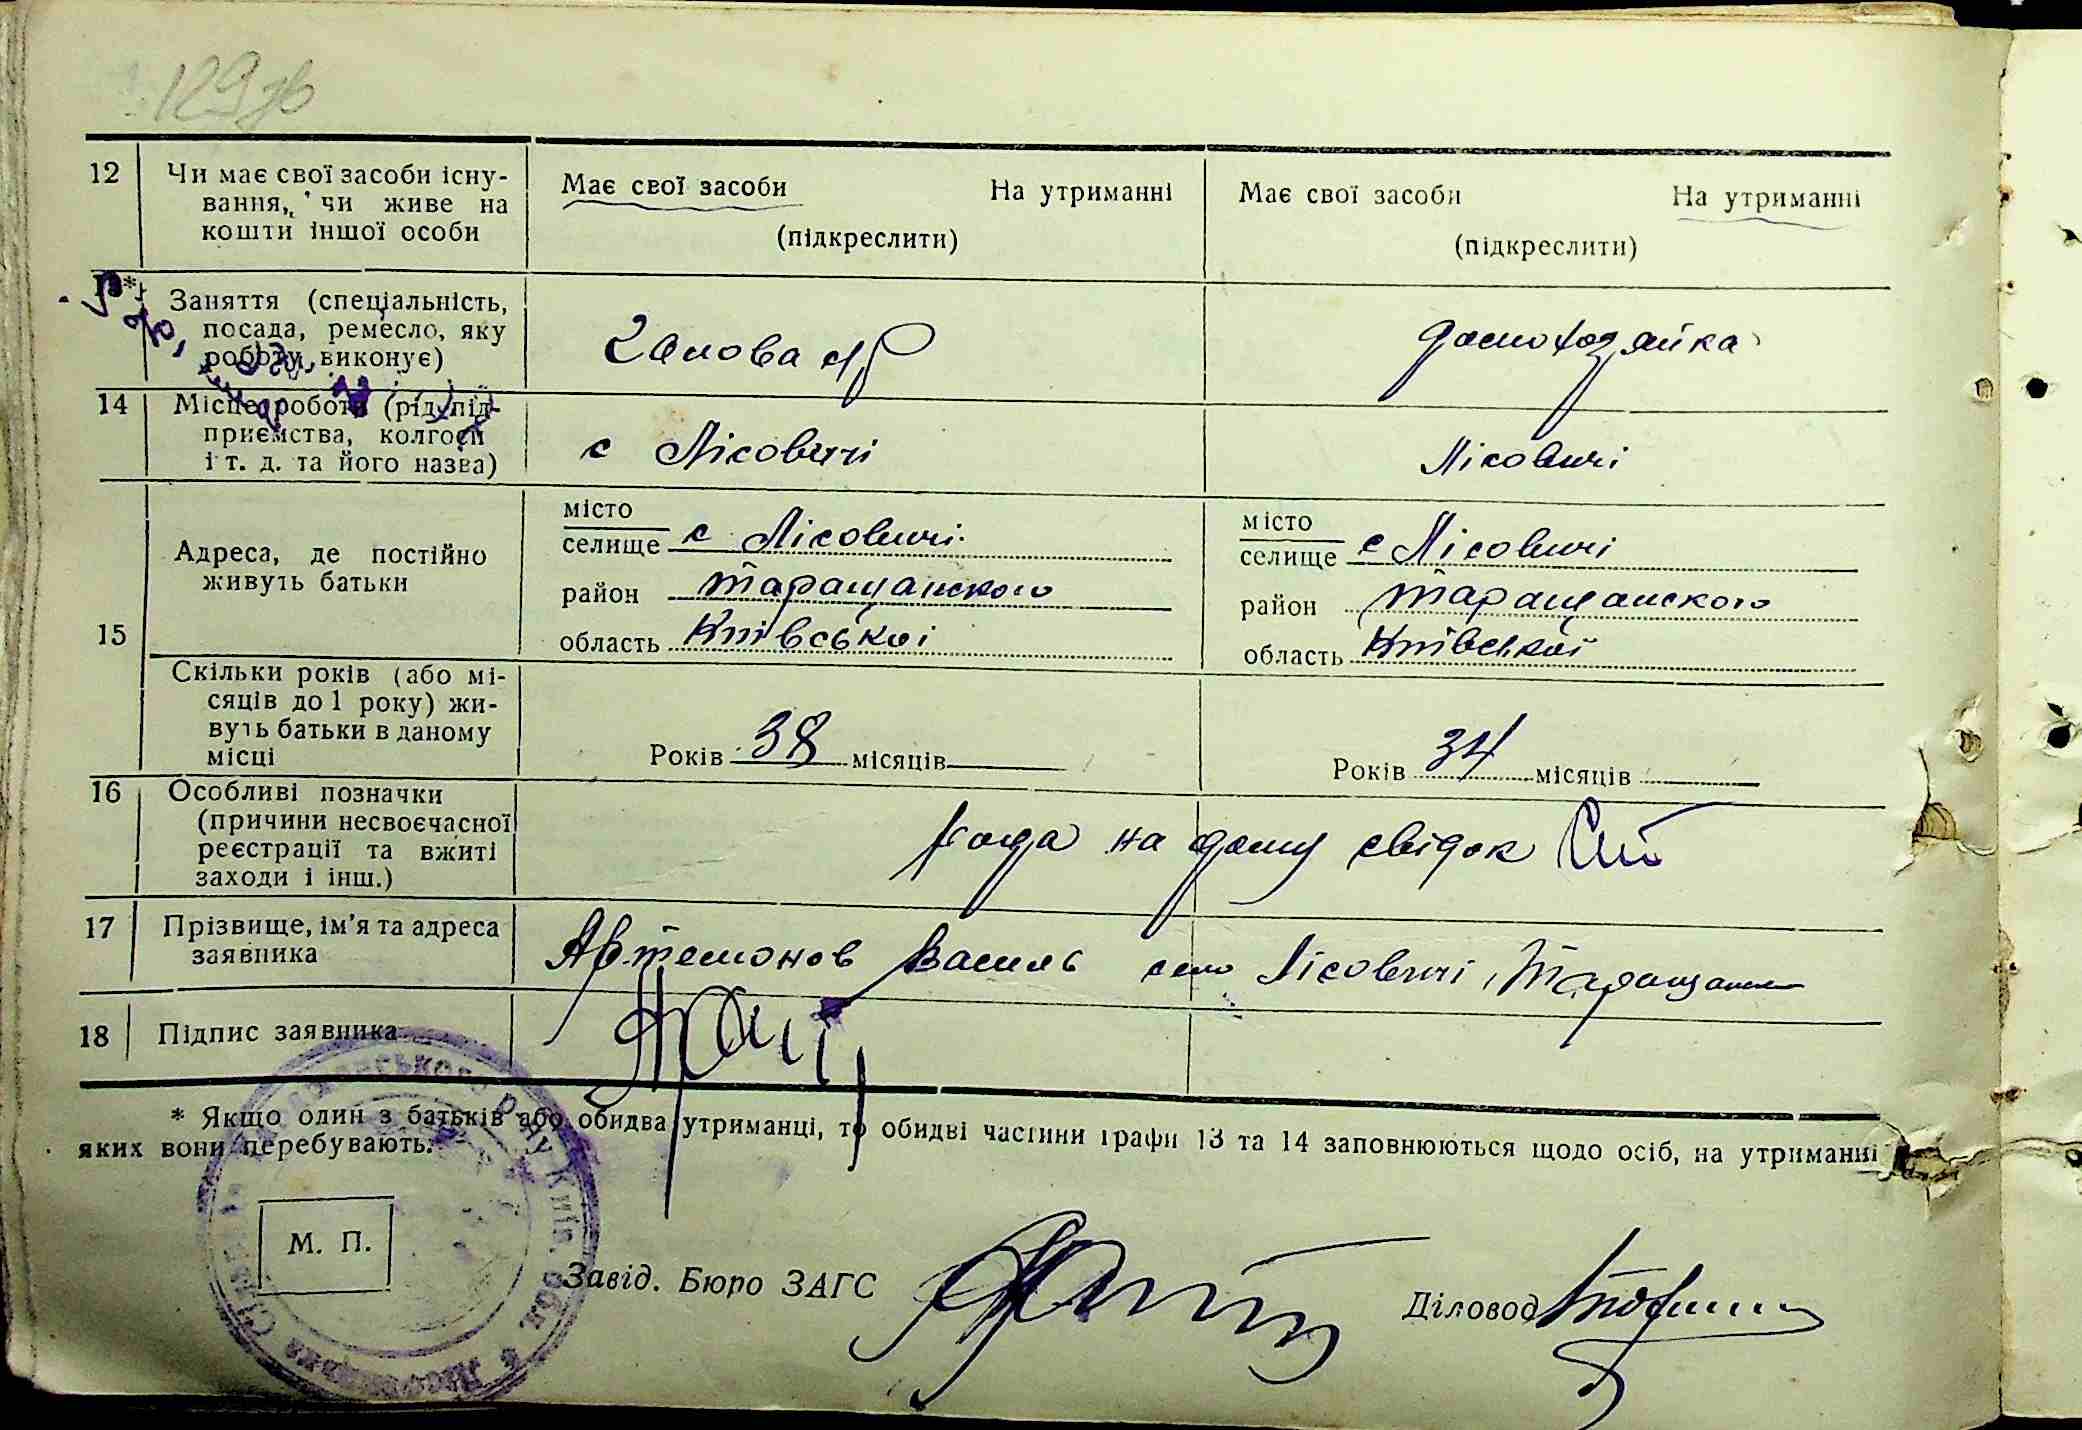 129зв
12 Чи має свої засоби існу-
вання, чи живе на
кошти іншої особи
Має свої засоби На утриманні
(підкреслити)
Має свої засоби На утриманні
(підкреслити)
13* Заняття (спеціальність,
посада, ремесло, яку
роботу виконує)
домохозяйка
14 Місце роботи (рід під-
приємства, колгосп
і т. д. та його назва)
с Лісовичі
Лісовичі
15 Адреса, де постійно
живуть батьки
місто
селище с Лісовичі
район Таращанского
область Київської
місто
селище с Лісовичі
район Таращанского
область Київської
Скільки років (або мі-
сяців до 1 року) жи-
вуть батьки в даному
місці
Років 38 місяців
Років 34 місяців
16 Особливі позначки
(причини несвоєчасної
реєстрації та вжиті
заходи і інш.)
на дому свідок
17 Прізвище, ім'я та адреса
заявника
Артемонов Василь село Лісовичі, Таращан
18 Підпис заявника
* Якщо один з батьків або обидва утриманці, то обидві частини графи 13 та 14 заповнюються щодо осіб, на утриманні
яких вони перебувають.
М. П.
Завід. Бюро ЗАГС
Діловод